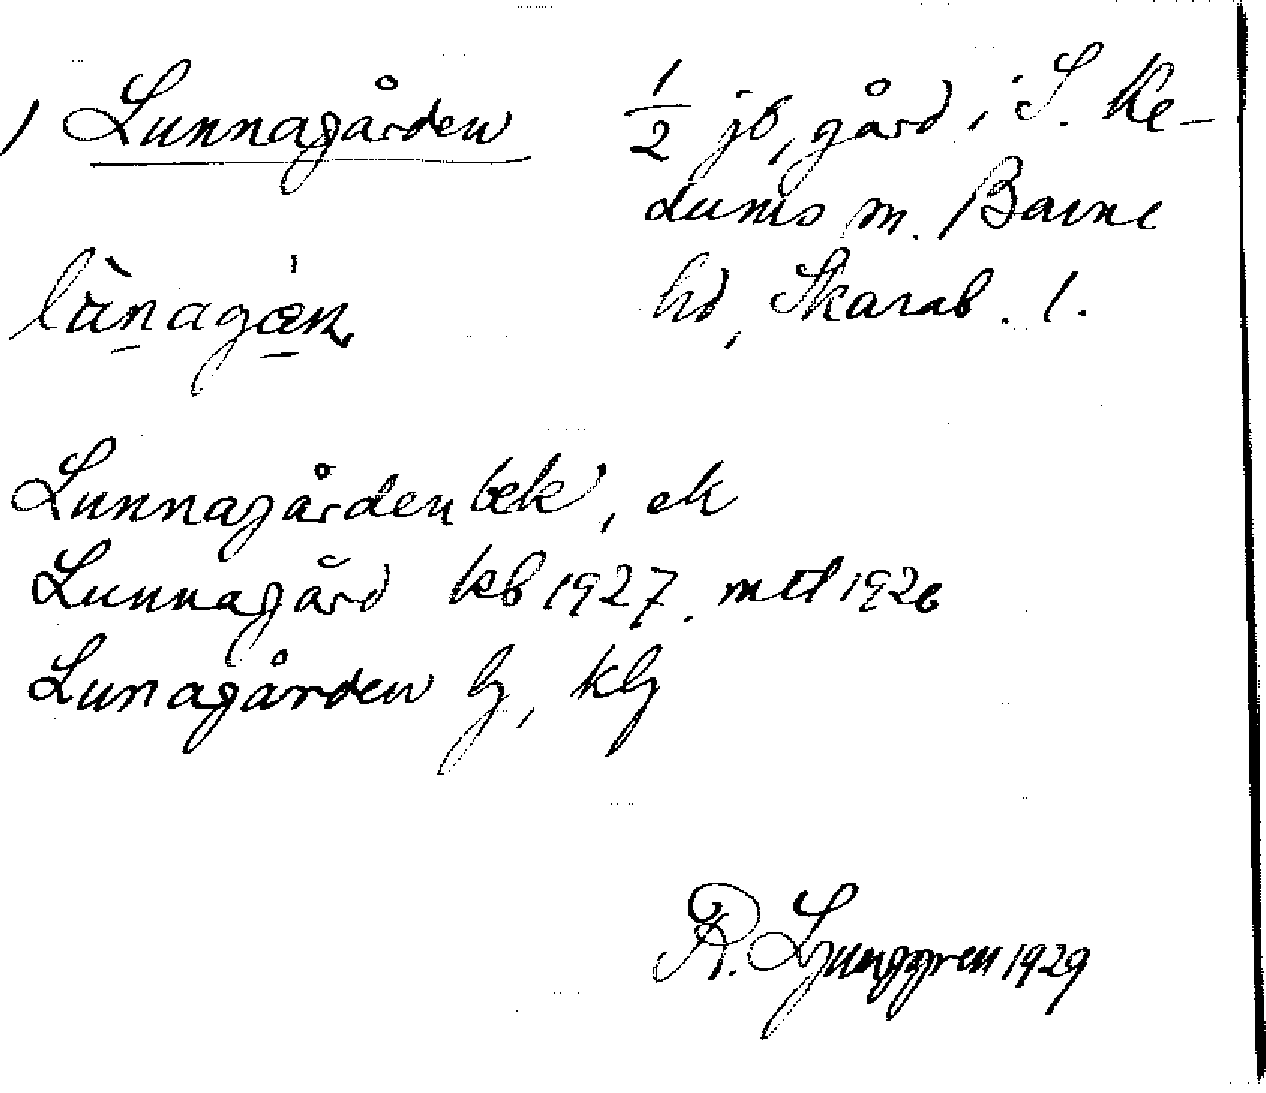 1) Lunnagården
½ jb, gård i S. Ke-
dums sn. Barne
hd, Skarab. l.
Lunnagården bek, ek
Lunnagård kb 1927. mtl 1926
Lunagården
R. Ljunggren 1929